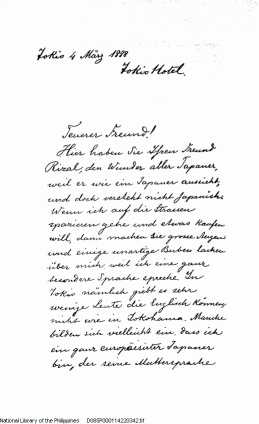 Tokio 4 März 1888
Tokio Hotel.
Teuerer Freund!
Hier haben Sie Ihren Freund
Rizal, den Wunder aller Japaner,
weil er wie ein Japaner aussieht,
und doch versteht nicht japanisch.
Wenn ich auf die Strassen
spazieren gehe und etwas kaufen
will, dann machen sie grosse Augen
und einige unartige Buben lachen
über mich weil ich eine ganz
besondere Sprache spreche. In
Tokio nämlich giebt es sehr
wenige Leute die Englisch können,
nicht wie in Yokohama. Manche
bilden sich vielleicht ein, dass ich
ein ganz europäisirter Japaner
bin, der seine Muttersprache
National Library of the Philippines D085P00011422034Z.tif